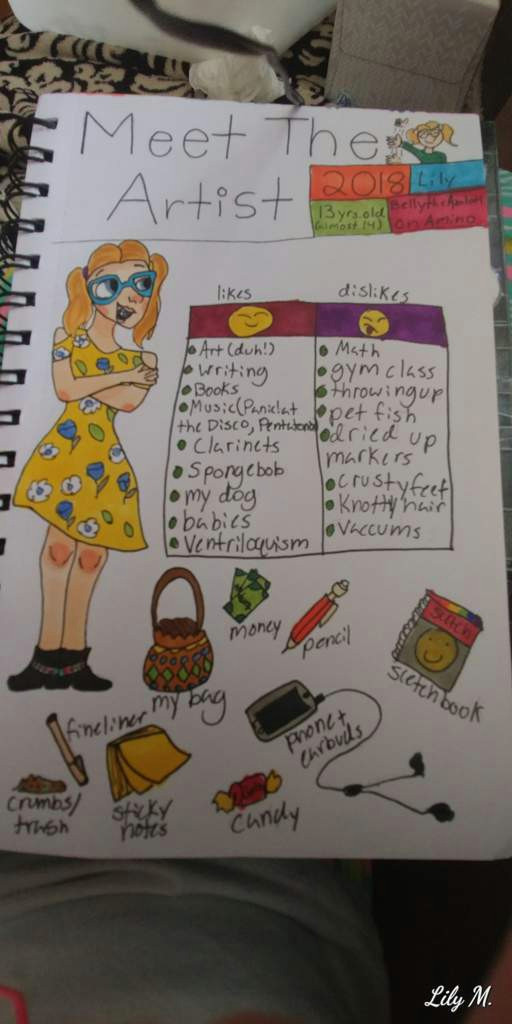 Meet The
Artist
2018
Lily
13 yrs. old
(almost 14)
on Amino
likes
dislikes
Art (duh!)
Writing
Books
Music (Panic! at
the Disco, Pentatonix)
Clarinets
Spongebob
my dog
babies
Ventriloquism
Math
gym class
throwing up
pet fish
dried up
markers
Crusty feet
Knotty hair
Vaccums
money
pencil
sketch
sketchbook
my bag
fineliner
phone +
earbuds
crumbs/
trash
sticky
notes
candy
Lily M.